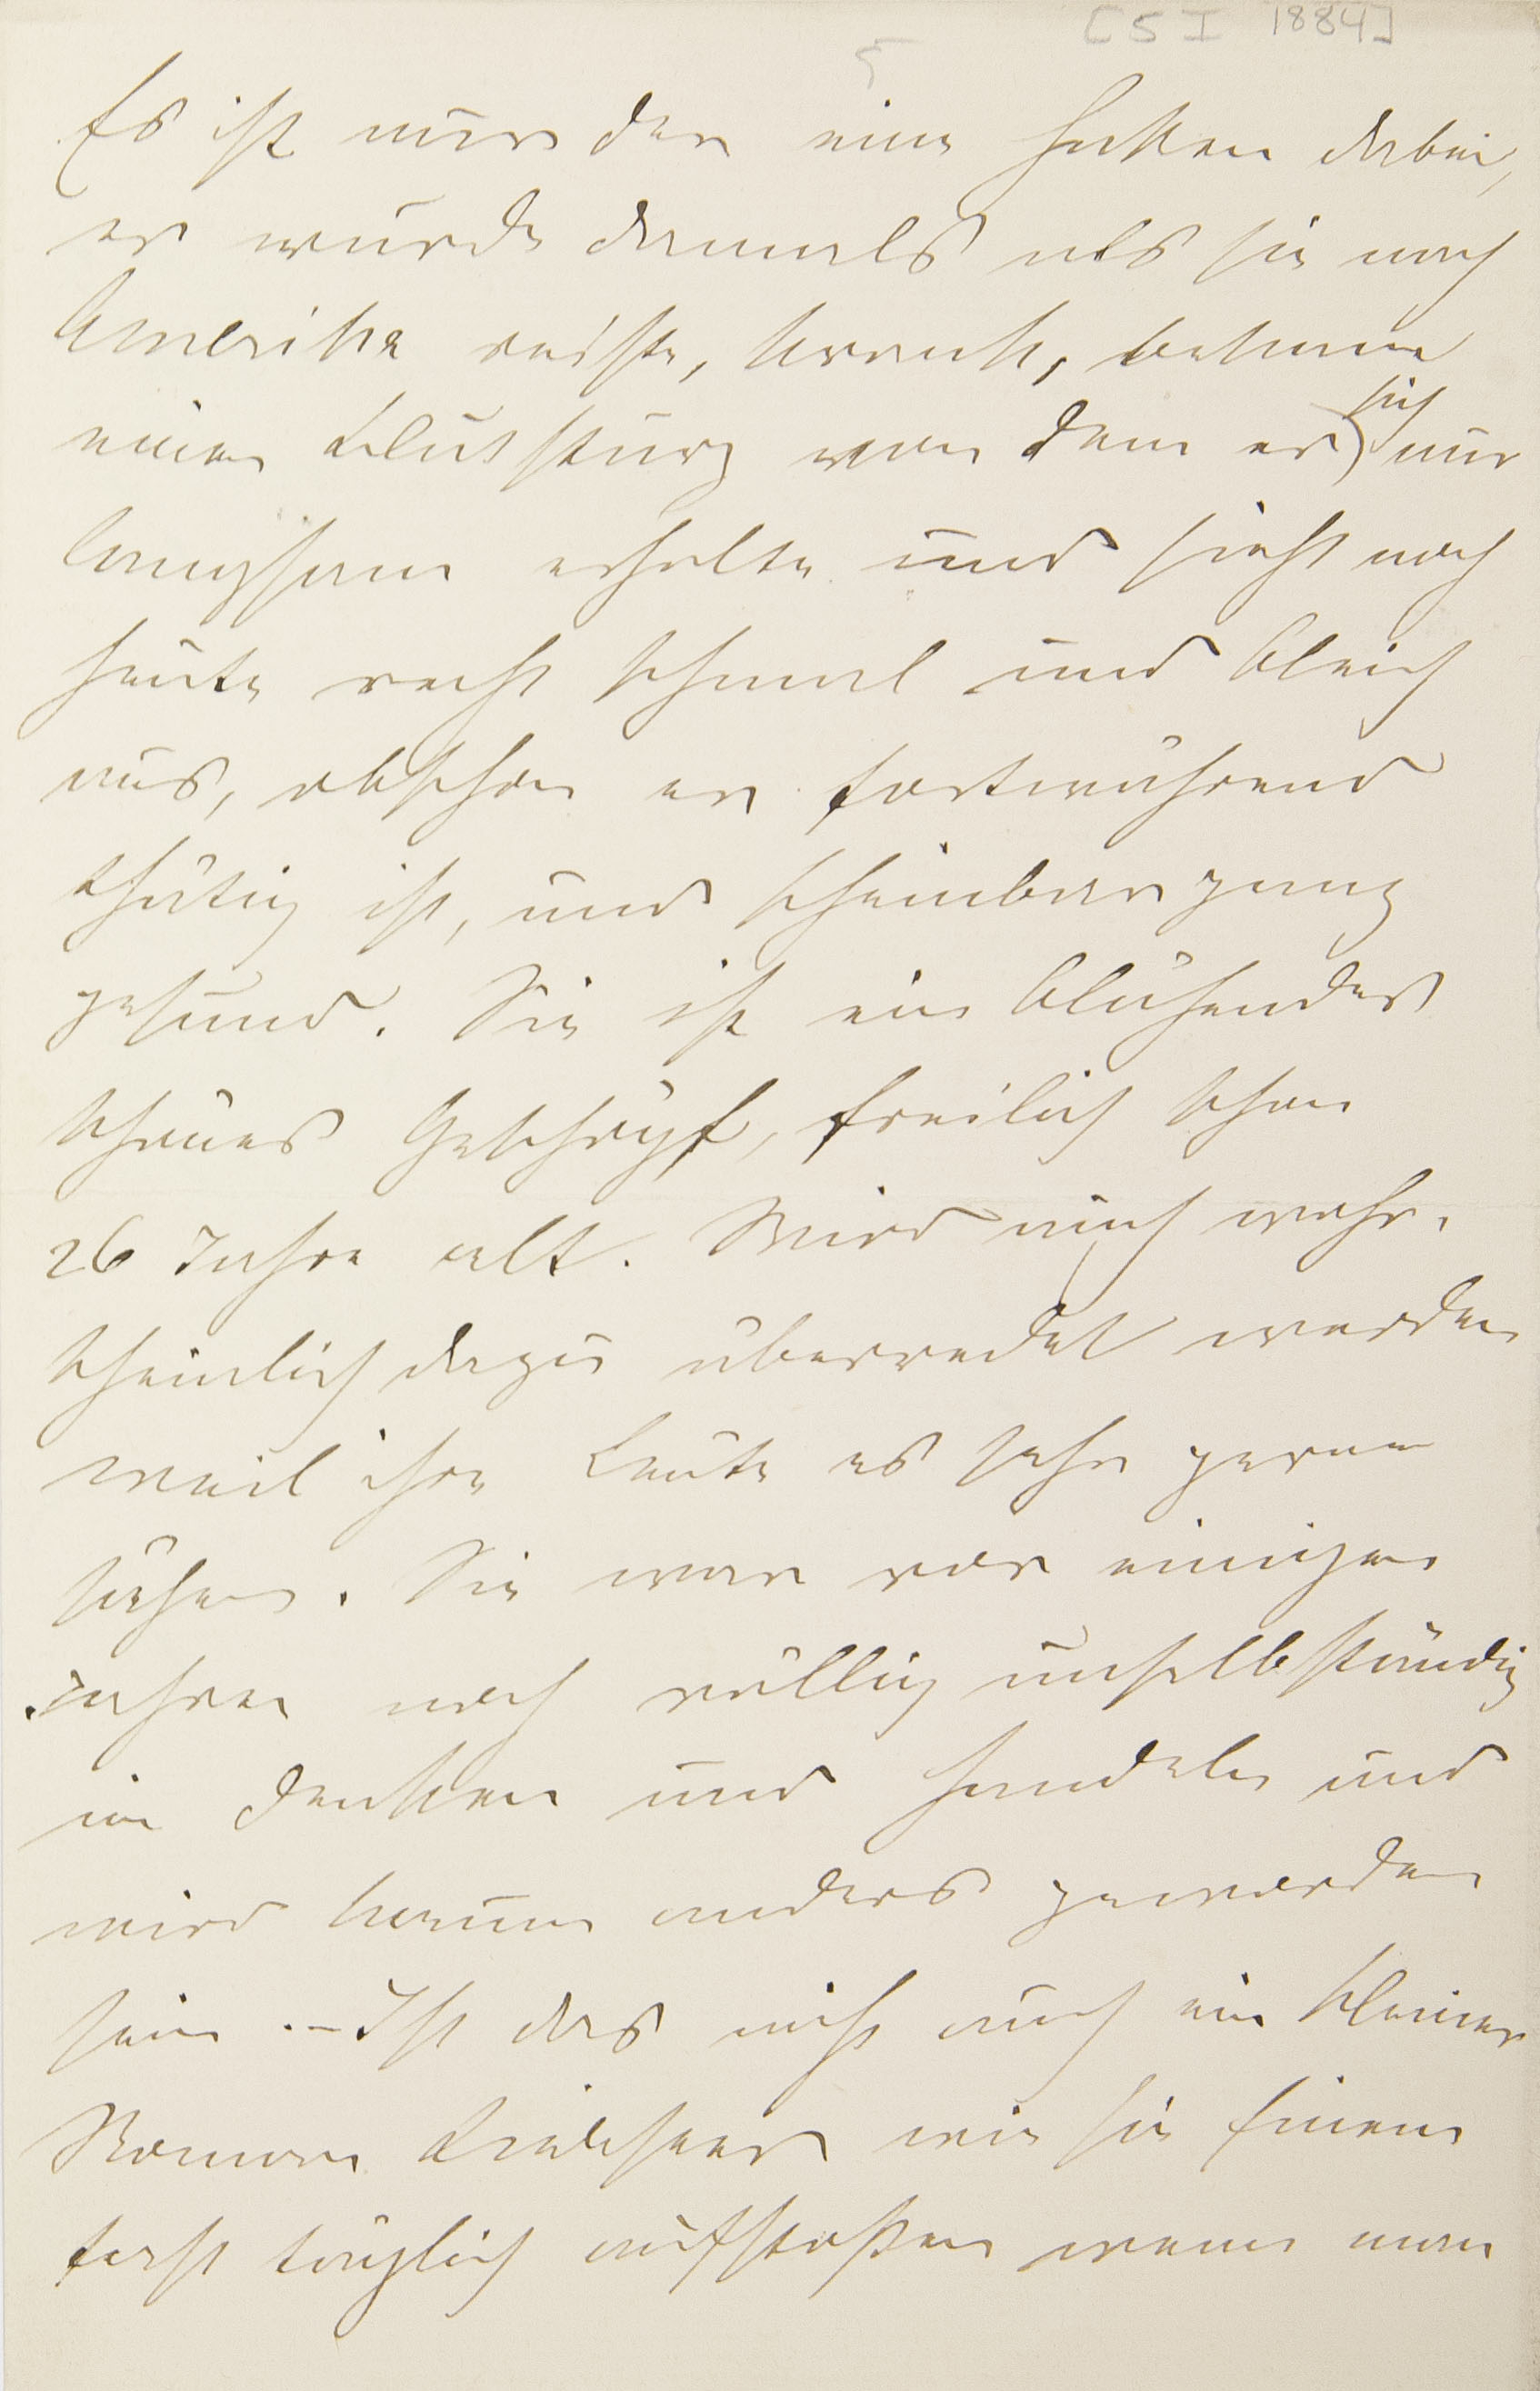 [5 I 1884]
5
Es ist nur der eine Haken dabei,
er wurde damals als sie nach
Amerika reiste, krank, bekam
einen Blutsturz von dem er sich nur
langsam erholte und sieht noch
heute recht schmal und bleich
aus, obschon er fortwährend
thätig ist, und scheinbar ganz
gesund. Sie ist ein blühendes
schönes Geschöpf, freilich schon
26 Jahre alt. Wird auch wahr-
scheinlich dazu überredet werden
weil ihre Leute es sehr gerne
sähen. Sie war vor einigen
Jahren noch völlig unselbständig
im Denken und Handeln und
wird kaum anders geworden
sein. – Ist das nicht auch ein kleiner
Roman wie sie Einem
fast täglich aufstoßen wenn man